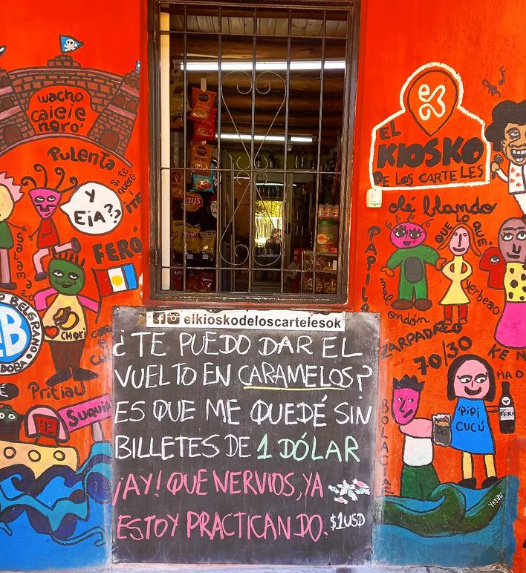 wacho
caiete
noro'
Pulenta
Y
EIA??
FERÓ
CHORI
BELGRANO
B
Pritiau
SUQUIA
EL
KIOSKO
DE LOS CARTELES
olé blando
QUE LO QUE
Verbeao
ZARPADAZO
70/30
PIPI
CUCÚ
Lays
elkioskodeloscartelesok
¿TE PUEDO DAR EL
VUELTO EN CARAMELOS?
ES QUE ME QUEDÉ SIN
BILLETES DE 1 DÓLAR
¡AY! QUE NERVIOS, YA
ESTOY PRACTICANDO. $1USD